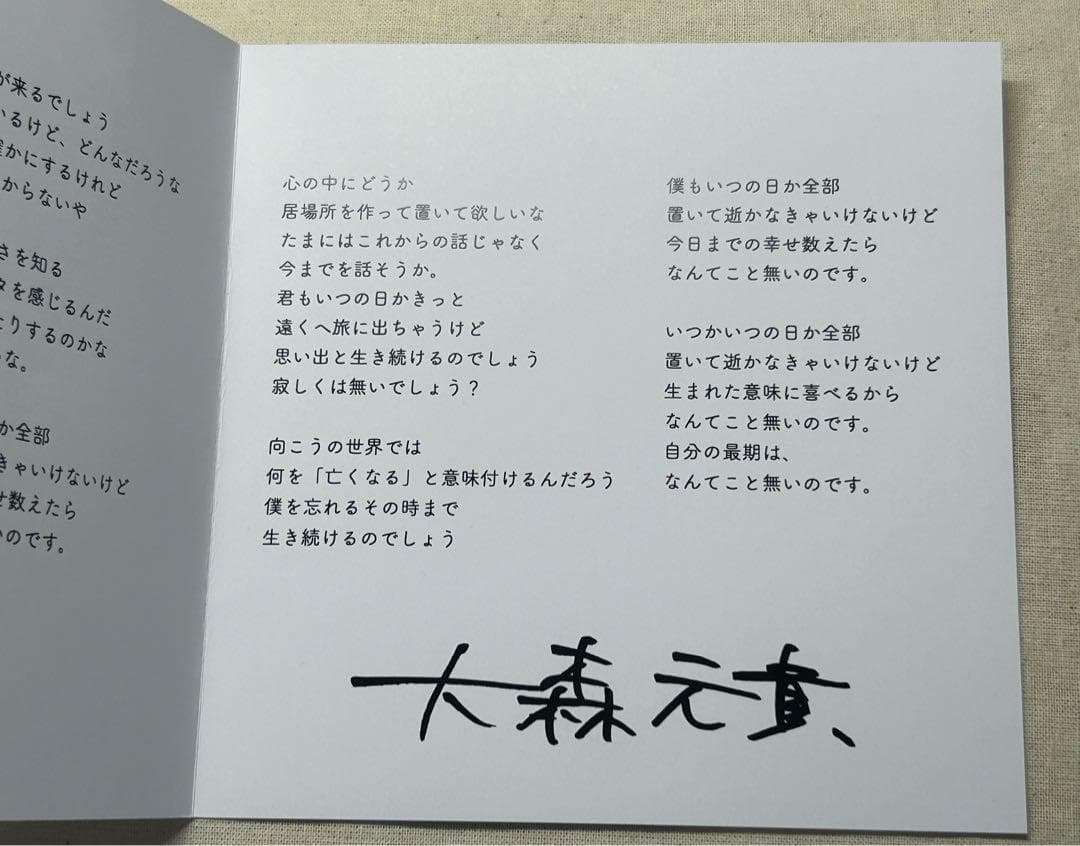 が来るでしょう
いるけど、どんなだろうな
確かにするけれど
からないや
さを知る
を感じるんだ
たりするのかな
な。
か全部
きゃいけないけど
せ数えたら
いのです。
心の中にどうか
居場所を作って置いて欲しいな
たまにはこれからの話じゃなく
今までを話そうか。
君もいつの日かきっと
遠くへ旅に出ちゃうけど
思い出と生き続けるのでしょう
寂しくは無いでしょう？
向こうの世界では
何を「亡くなる」と意味付けるんだろう
僕を忘れるその時まで
生き続けるのでしょう
僕もいつの日か全部
置いて逝かなきゃいけないけど
今日までの幸せ数えたら
なんてこと無いのです。
いつかいつの日か全部
置いて逝かなきゃいけないけど
生まれた意味に喜べるから
なんてこと無いのです。
自分の最期は、
なんてこと無いのです。
大森元貴、